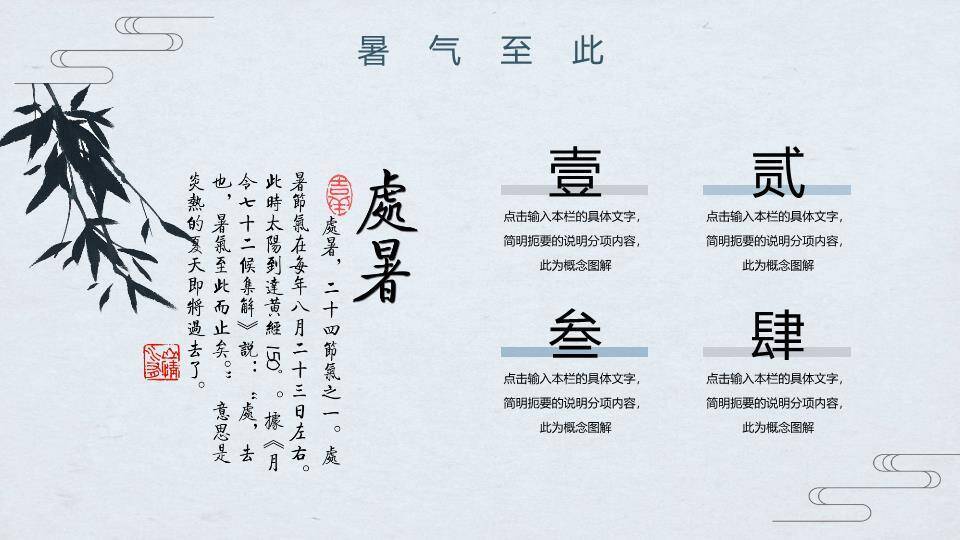 暑气至此
處暑
處暑，二十四節氣之一。處
暑節氣在每年八月二十三日左右。
此時太陽到達黃經150。。據《月
令七十二候集解》説：“處，去
也，暑氣至此而止矣。”意思是
炎熱的夏天即將過去了。
壹
点击输入本栏的具体文字，
简明扼要的说明分项内容，
此为概念图解
贰
点击输入本栏的具体文字，
简明扼要的说明分项内容，
此为概念图解
叁
点击输入本栏的具体文字，
简明扼要的说明分项内容，
此为概念图解
肆
点击输入本栏的具体文字，
简明扼要的说明分项内容，
此为概念图解